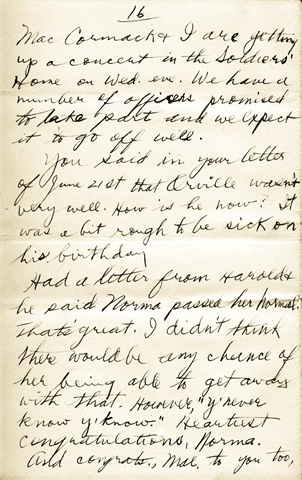 16
Mac Cormack & I are getting
up a concert in the Soldiers'
Home on Wed. eve. We have a
number of officers promised
to take part and we expect
it to go off well.
You said in your letter
of June 21st that Orville wasn't
very well. How is he now? It
was a bit rough to be sick on
his birthday
Had a letter from Harold &
he said Norma passed her Normal.
Thats great. I didn't think
there would be any chance of
her being able to get away
with that. However, "y'never
know y'know." Heartiest
congratulations, Norma.
And congrats, Mae, to you too,